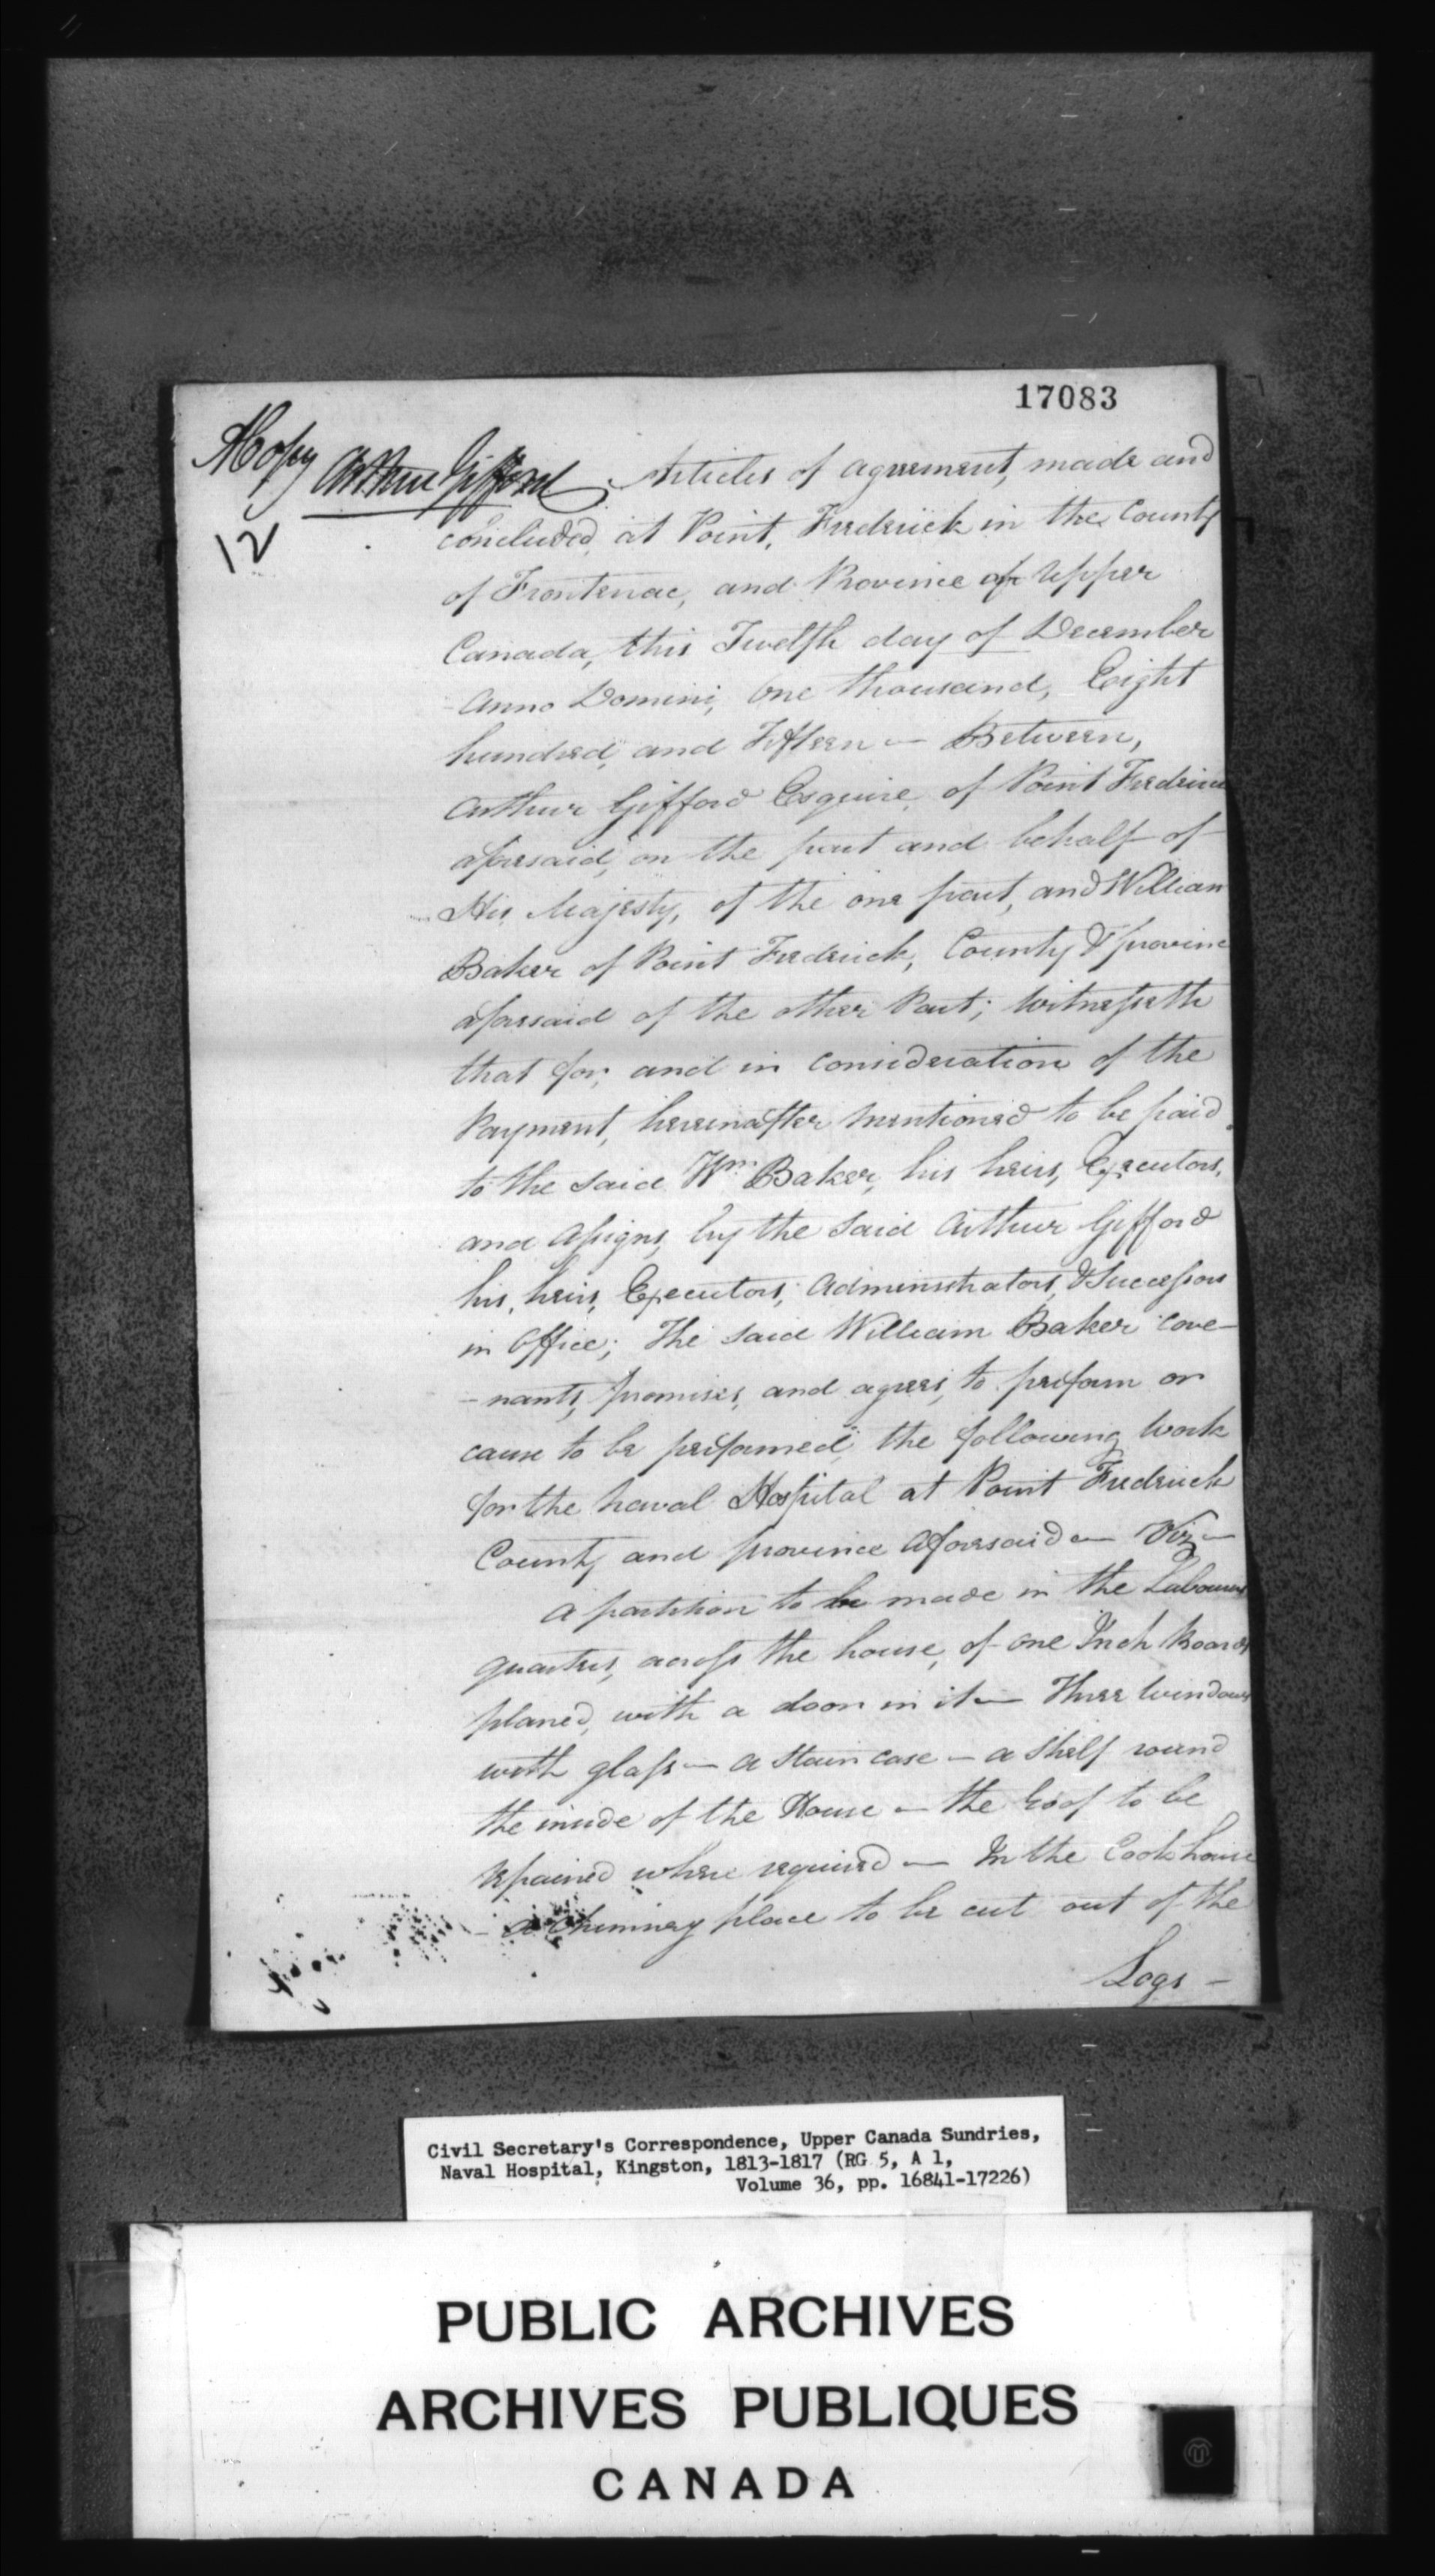 17083
A Copy Arthur Gifford
12
Articles of agreement, made and
concluded, at Point, Fredrick in the County
of Frontenac, and Province of Upper
Canada, this Twelfth day of December
Anno Domini, One thousand, Eight
hundred, and Fifteen — Between,
Arthur Gifford Esquire, of Point Fredrick
aforsaid, on the part and behalf of
His Majesty, of the one part, and William
Baker of Point Fredrick, County & province
aforsaid of the other Part; Witnesseth
that for, and in consideration of the
Payment, hereinafter mentioned to be paid
to the said Wm. Baker, his heirs, Executors,
and Assigns, by the said Arthur Gifford
his, heirs, Executors, Adminstrators, & Successors
in Office; The said William Baker cove-
-nants, promises, and agrees, to preform or
cause to be preformed, the following Work
for the Naval Hospital at Point Fredrick
County and province Aforsaid — Viz —
A partition to be made in the Labourers
quarters, across the house, of one Inch Boards
planed, with a door in it — Three Windows
with glass — a Stair case — a Shelf round
the inside of the House — the Roof to be
repaired where required — In the Cook house
- a Chimney place to be cut out of the
Logs -
Civil Secretary's Correspondence, Upper Canada Sundries,
Naval Hospital, Kingston, 1813-1817 (RG 5, A 1,
Volume 36, pp. 16841-17226)
PUBLIC ARCHIVES
ARCHIVES PUBLIQUES
CANADA